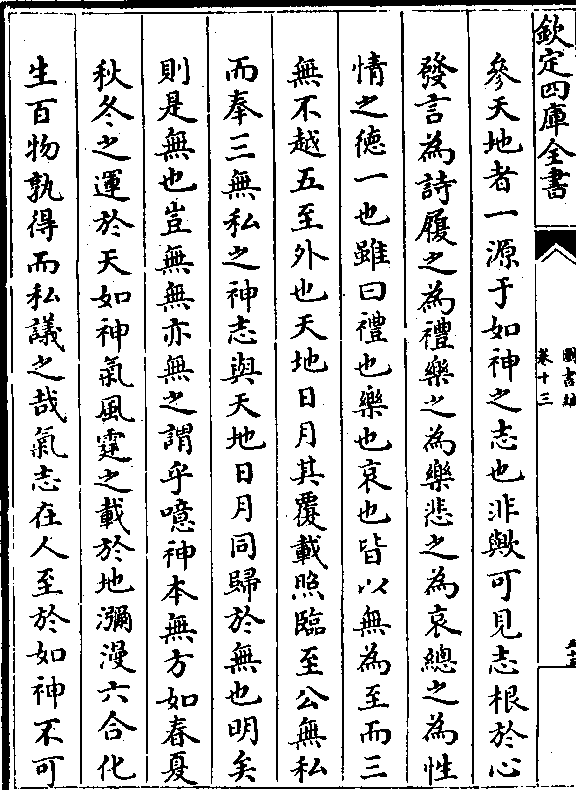 欽定四庫全書
圖書編
卷十三
參天地者一源于如神之志也非歟可見志根於心
發言為詩履之為禮樂之為樂悲之為哀總之為性
情之德一也雖曰禮也樂也哀也皆以無為至而三
無不越五至外也天地日月其覆載照臨至公無私
而奉三無私之神志與天地日月同歸於無也明矣
則是無也豈無無亦無之謂乎噫神本無方如春夏
秋冬之運於天如神氣風霆之載於地瀰漫六合化
生百物孰得而私議之哉氣志在人至於如神不可